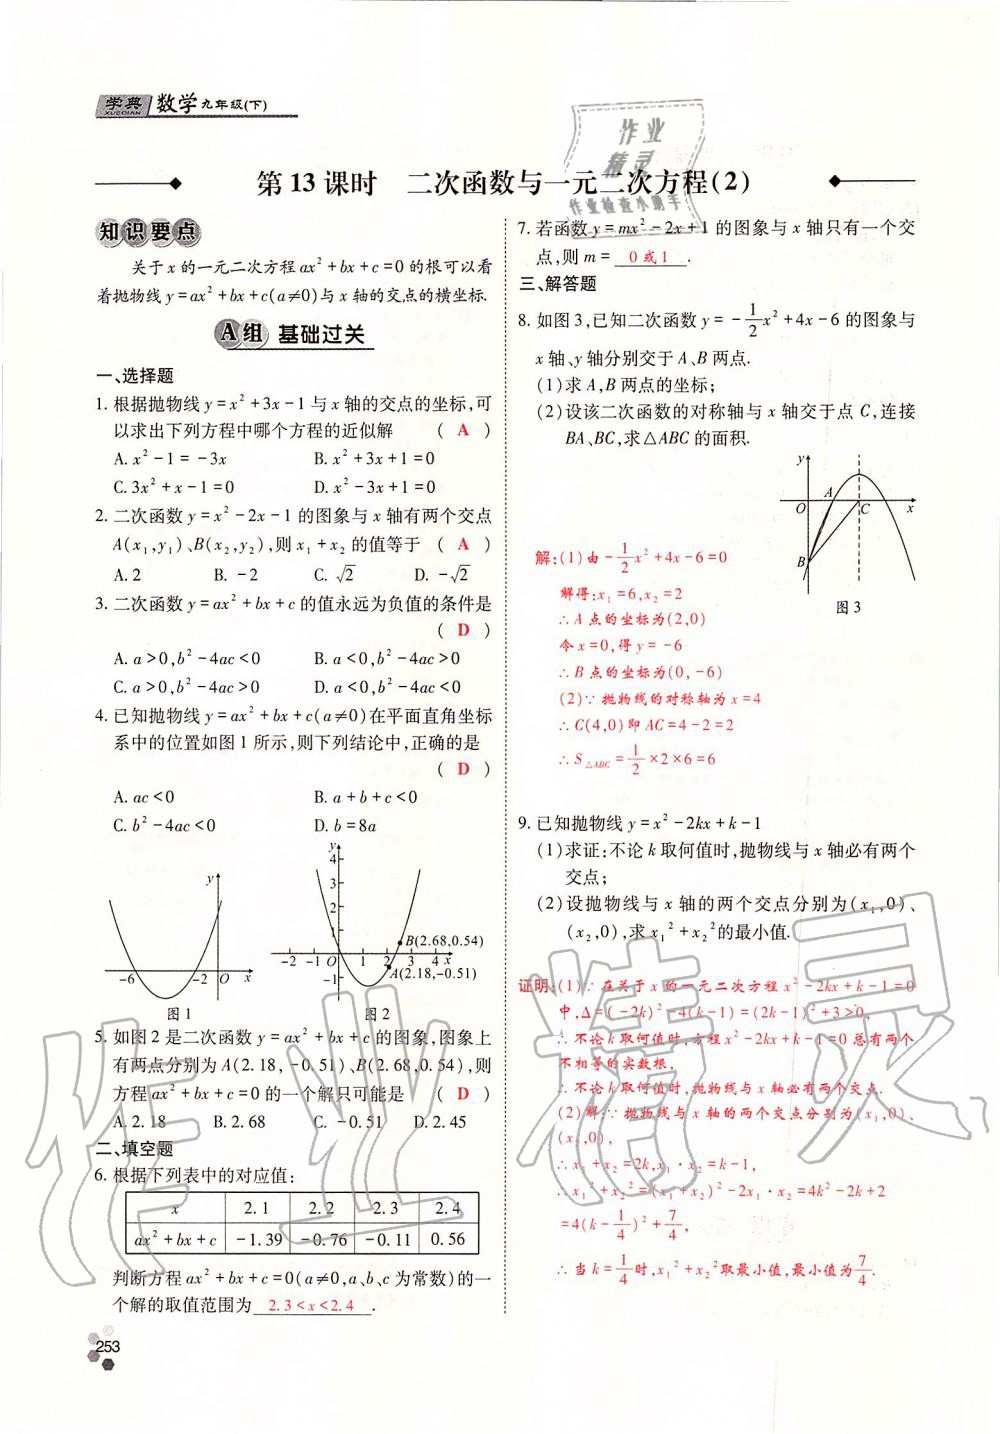 学典 数学 九年级(下)
XUEDIAN
第13课时 二次函数与一元二次方程(2)
知识要点
关于x的一元二次方程ax²+bx+c=0的根可以看
着抛物线y=ax²+bx+c(a≠0)与x轴的交点的横坐标.
A组 基础过关
一、选择题
1. 根据抛物线y=x²+3x-1与x轴的交点的坐标,可
以求出下列方程中哪个方程的近似解 ( A )
A. x²-1=-3x B. x²+3x+1=0
C. 3x²+x-1=0 D. x²-3x+1=0
2. 二次函数y=x²-2x-1的图象与x轴有两个交点
A(x₁,y₁)、B(x₂,y₂),则x₁+x₂的值等于 ( A )
A. 2 B. -2 C. √2 D. -√2
3. 二次函数y=ax²+bx+c的值永远为负值的条件是
( D )
A. a>0,b²-4ac<0 B. a<0,b²-4ac>0
C. a>0,b²-4ac>0 D. a<0,b²-4ac<0
4. 已知抛物线y=ax²+bx+c(a≠0)在平面直角坐标
系中的位置如图1所示,则下列结论中,正确的是
( D )
A. ac<0 B. a+b+c<0
C. b²-4ac<0 D. b=8a
y
-6 -2 O x
图1
y
4
3
2
1
-2 -1 O 1 2 3 4 x
-1
B(2.68,0.54)
A(2.18,-0.51)
图2
5. 如图2是二次函数y=ax²+bx+c的图象,图象上
有两点分别为A(2.18,-0.51)、B(2.68,0.54),则
方程ax²+bx+c=0的一个解只可能是 ( D )
A. 2.18 B. 2.68 C. -0.51 D. 2.45
二、填空题
6. 根据下列表中的对应值:
x 2.1 2.2 2.3 2.4
ax²+bx+c -1.39 -0.76 -0.11 0.56
判断方程ax²+bx+c=0(a≠0,a、b、c为常数)的一
个解的取值范围为 2.3<x<2.4 .
253
7. 若函数y=mx²-2x+1的图象与x轴只有一个交
点,则m= 0或1 .
三、解答题
8. 如图3,已知二次函数y=-1/2x²+4x-6的图象与
x轴、y轴分别交于A、B两点.
(1)求A,B两点的坐标;
(2)设该二次函数的对称轴与x轴交于点C,连接
BA、BC,求△ABC的面积.
y
O A C x
B
图3
解:(1)由-1/2x²+4x-6=0
解得:x₁=6,x₂=2
∴A点的坐标为(2,0)
令x=0,得y=-6
∴B点的坐标为(0,-6)
(2)∵抛物线的对称轴为x=4
∴C(4,0)即AC=4-2=2
∴S△ABC=1/2×2×6=6
9. 已知抛物线y=x²-2kx+k-1
(1)求证:不论k取何值时,抛物线与x轴必有两个
交点;
(2)设抛物线与x轴的两个交点分别为(x₁,0)、
(x₂,0),求x₁²+x₂²的最小值.
证明:(1)∵在关于x的一元二次方程x²-2kx+k-1=0
中,Δ=(-2k)²-4(k-1)=(2k-1)²+3>0,
∴不论k取何值时,方程x²-2kx+k-1=0总有两个
不相等的实数根,
∴不论k取何值时,抛物线与x轴必有两个交点.
(2)解:∵抛物线与x轴的两个交点分别为(x₁,0)、
(x₂,0),
∴x₁+x₂=2k,x₁·x₂=k-1,
∴x₁²+x₂²=(x₁+x₂)²-2x₁·x₂=4k²-2k+2
=4(k-1/4)²+7/4,
∴当k=1/4时,x₁²+x₂²取最小值,最小值为7/4.
作业
精灵
作业检查小助手
作业精灵